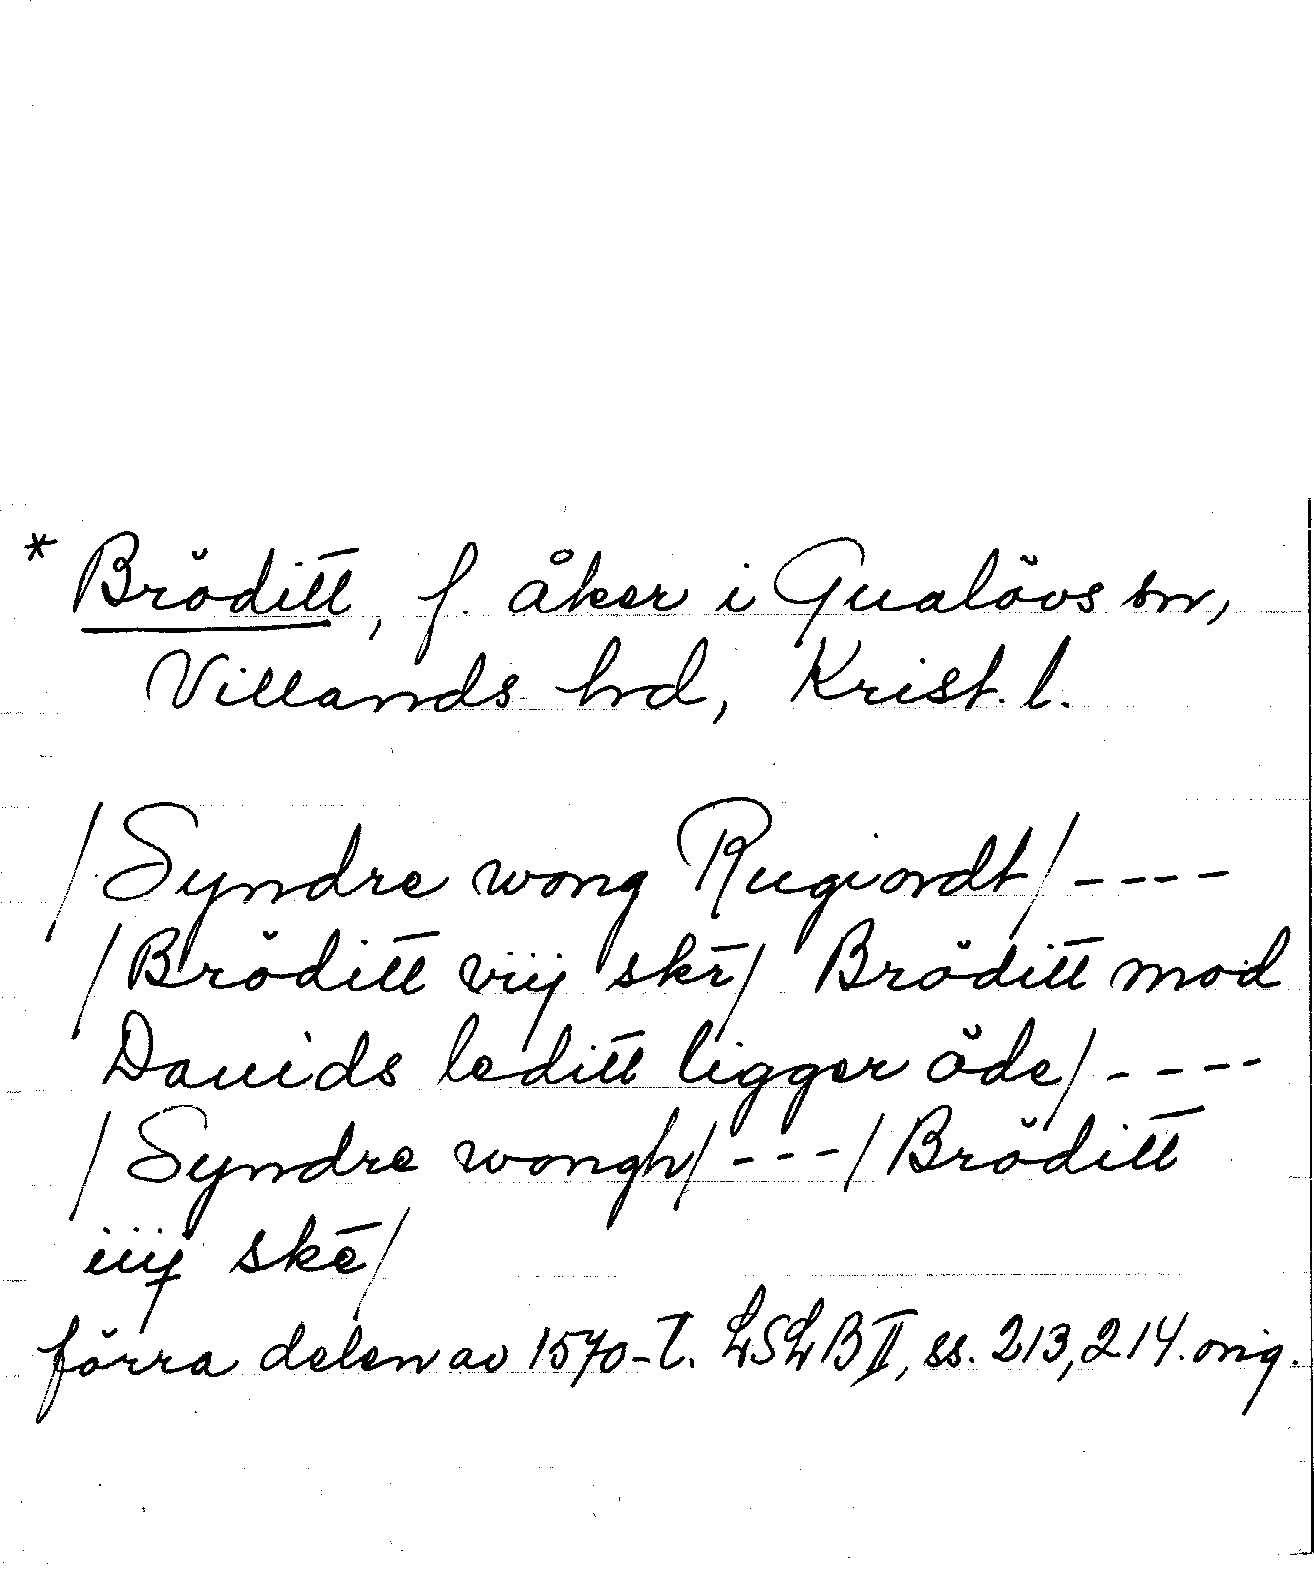 * Bröditt, f. åker i Gualövs sn,
Villands hd, Krist. l.
/Syndre wong Rugiordt/ ----
/Bröditt viij skr̄/ Bröditt mod
Dauids leditt ligger öde/ ----
/Syndre wongh/ --- / Bröditt
iiij skē/
förra delen av 1570-t. LSLB II, ss. 213, 214. orig.